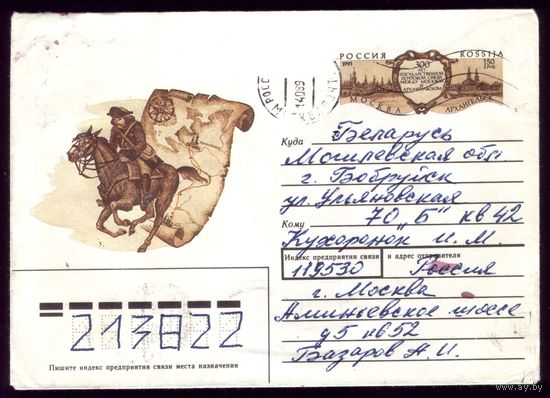 РОССИЯ ROSSIJA
1993 300 150
ЛЕТ РУБ
ГОСУДАРСТВЕННОЙ
ПОЧТОВОЙ СВЯЗИ
МЕЖДУ МОСКВОЙ
И
АРХАНГЕЛЬСКОМ
МОСКВА АРХАНГЕЛЬСК
Куда Беларусь
Могилевская обл.
г. Бобруйск
ул. Ульяновская
70 "Б" кв 42
Кому
Кухоронок И. М.
Индекс предприятия связи и адрес отправителя
119530 Россия
г. Москва
Аминьевское шоссе
д5 кв52
Базаров А. И.
213822
Пишите индекс предприятия связи места назначения
www.ay.by